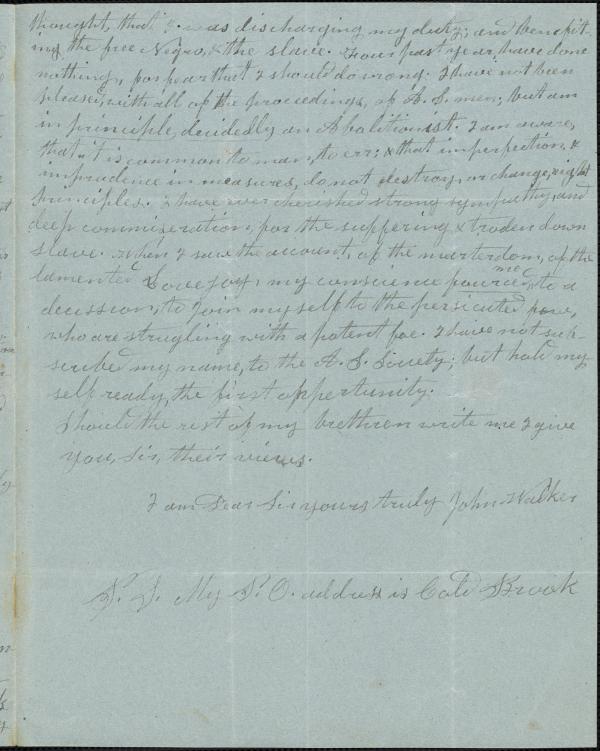 thought, that I was discharging my duty; and benefit-
ing the free Negro, & the slave. Four past year, have done
nothing, for fear that I should do wrong. I have not been
pleased, with all of the proceedings, of A. S. men; but am
in principle, decidedly an Abolitionist. I am aware,
that it is common to man, to err; & that imperfection, &
imprudence in measures, do not destroy, or change, right
principles. I have ever cherished strong sympathy, and
deep commizeration, for the suffering & troden down
slave. When I saw the account, of the marterdom, of the
lamented Lovejoy, my conscience fourced mee, to a
decission, to join myself to the persicuted few,
who are strugling with a potent foe. I have not sub-
scribed my name, to the A. S. Society; but hold my
self ready, the first oppertunity.
Should the rest of my brethren write me I give
you, Sir, their views.
I am Dear Sir yours truly John Walker
P. S. My P. O. address is Cold Brook